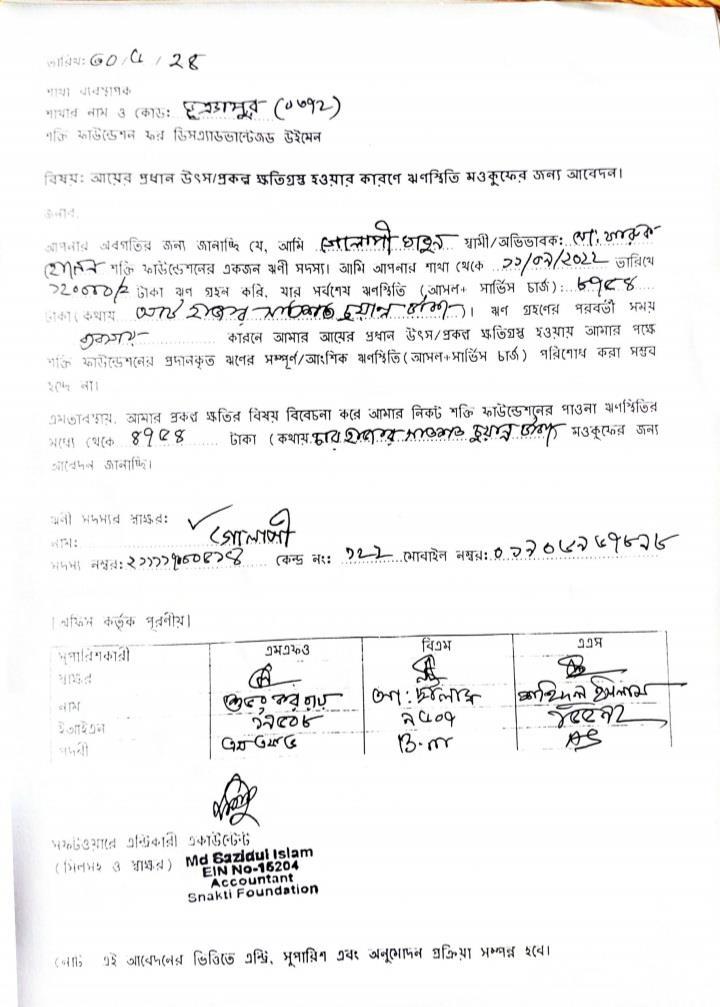 তারিখ: ৩০/৫/২৪
শাখা ব্যবস্থাপক
শাখার নাম ও কোড:
শক্তি ফাউন্ডেশন ফর ডিসএ্যাডভান্টেজড উইমেন
বিষয়: আয়ের প্রধান উৎস/প্রকল্প ক্ষতিগ্রস্থ হওয়ার কারণে ঋণস্থিতি মওকুফের জন্য আবেদন।
জনাব,
আপনার অবগতির জন্য জানাচ্ছি যে, আমি গোলাপী খাতুন স্বামী/অভিভাবক: মো: ফারুক
হোসেন শক্তি ফাউন্ডেশনের একজন ঋণী সদস্য। আমি আপনার শাখা থেকে ১১/০১/২০২২ তারিখে
১২০০০/= টাকা ঋণ গ্রহন করি, যার সর্বশেষ ঋণস্থিতি (আসল+ সার্ভিস চার্জ): ৮৭৫৪
টাকা (কথায় আট হাজার সাতশত চুয়ান্ন টাকা)। ঋণ গ্রহণের পরবর্তী সময়
কারনে আমার আয়ের প্রধান উৎস/প্রকল্প ক্ষতিগ্রস্থ হওয়ায় আমার পক্ষে
শক্তি ফাউন্ডেশনের প্রদানকৃত ঋণের সম্পূর্ণ/আংশিক ঋণস্থিতি (আসল+সার্ভিস চার্জ) পরিশোধ করা সম্ভব
হচ্ছে না।
এমতাবস্থায়, আমার প্রকল্প ক্ষতির বিষয় বিবেচনা করে আমার নিকট শক্তি ফাউন্ডেশনের পাওনা ঋণস্থিতির
মধ্যে থেকে ৪৭৫৪ টাকা (কথায় চার হাজার সাতশত চুয়ান্ন টাকা) মওকুফের জন্য
আবেদন জানাচ্ছি।
ঋণী সদস্যের স্বাক্ষর:
নাম: গোলাপী
সদস্য নম্বর: কেন্দ্র নং: ১২২ মোবাইল নম্বর:
[অফিস কর্তৃক পূরণীয়]
সুপারিশকারী এমএফও বিএম এএস
স্বাক্ষর
নাম শহিদুল ইসলাম
ইআইএন
পদবী এম এফ ও B.m AS
সফটওয়ারে এন্ট্রিকারী একাউন্টেন্ট
(সিলসহ ও স্বাক্ষর) Md Sazidul Islam
EIN No-15204
Accountant
Shakti Foundation
নোট এই আবেদনের ভিত্তিতে এন্ট্রি, সুপারিশ এবং অনুমোদন প্রক্রিয়া সম্পন্ন হবে।